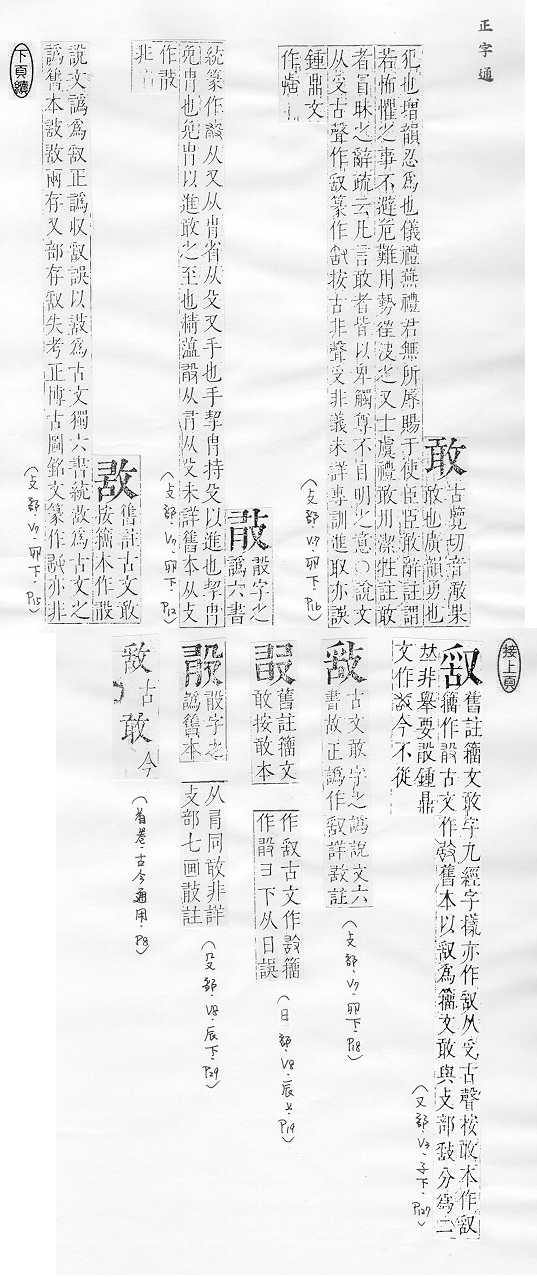 正字通
敢
古覽切音澉果
敢也廣韻勇也
犯也增韻忍為也儀禮燕禮君無所辱賜于使臣臣敢辭註謂
若怖懼之事不避危難用勢往波之又士虞禮敢用潔牲註敢
者冒昧之辭疏云凡言敢者皆以卑觸尊不自明之意○說文
从𠬪古聲作𠭖篆作按古非聲𠬪非義未詳專訓進取亦誤
鍾鼎文
作
(攴部·V7·卯下·P16)
㪉字之
譌六書
統篆作㪉从又从冑省从殳又手也手挈冑持殳以進也挈冑
免冑也免冑以進敢之至也精蘊㪉从冃从殳未詳舊本从攴
作㪉
非
(攴部·V7·卯下·P12)
舊註古文敢
按籀本作㪉
說文譌為𠭖正譌収𠭖誤以為古文獨六書統敢為古文之
譌舊本敢兩存又部存𠭖失考正博古圖銘文篆作亦非
(攴部·V7·卯下·P15)
下頁續
接上頁
𠭖
舊註籀文敢字九經字樣亦作𠭖从𠬪古聲按敢本作𠭖
籀作㪉古文作舊本以𠭖為籀文敢與攴部分為二
𠀤非舉要設鍾鼎
文作今不從
(又部·V3·子下·P127)
古文敢字之譌說文六
書故正譌作𠭖詳註
(攴部·V7·卯下·P18)
舊註籀文
敢按敢本
作𠭖古文作籀
作㪉彐下从日誤
(日部·V8·辰上·P19)
㪉字之
譌舊本
从冃同敢非詳
攴部七画註
(殳部·V8·辰下·P29)
古
敢 今
(首卷·古今通用·P8)